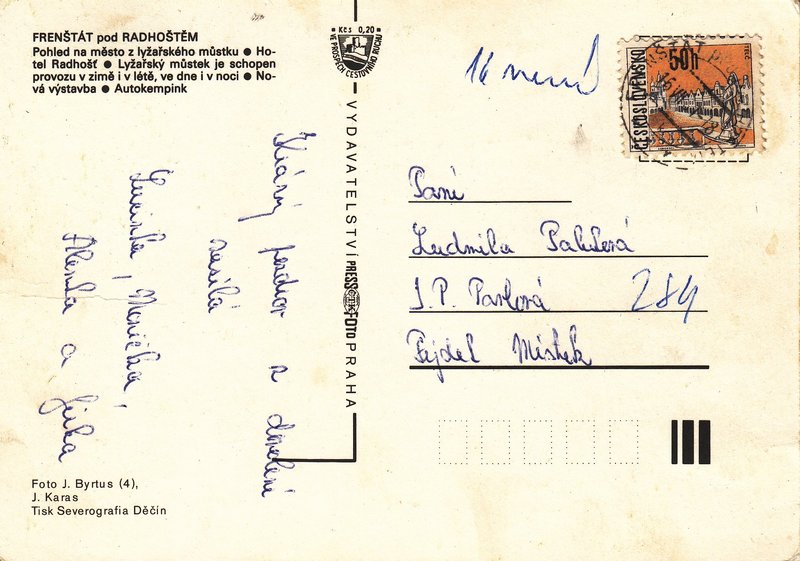 FRENŠTÁT pod RADHOŠTĚM
Pohled na město z lyžařského můstku ● Ho-
tel Radhošť ● Lyžařský můstek je schopen
provozu v zimě i v létě, ve dne i v noci ● No-
vá výstavba ● Autokempink
Kčs 0,20
VE PROSPĚCH CESTOVNÍHO RUCHU
ČESKOSLOVENSKO
50h
TELČ
Krásný pozdrav z dovolení
zasílá
Lucinka, Monička,
Alenka a Jirka
VYDAVATELSTVÍ PRESSFOTO PRAHA
ČTK
Paní
Ludmila
I.P. Pavlova 284
Místek
Foto J. Byrtus (4),
J. Karas
Tisk Severografia Děčín